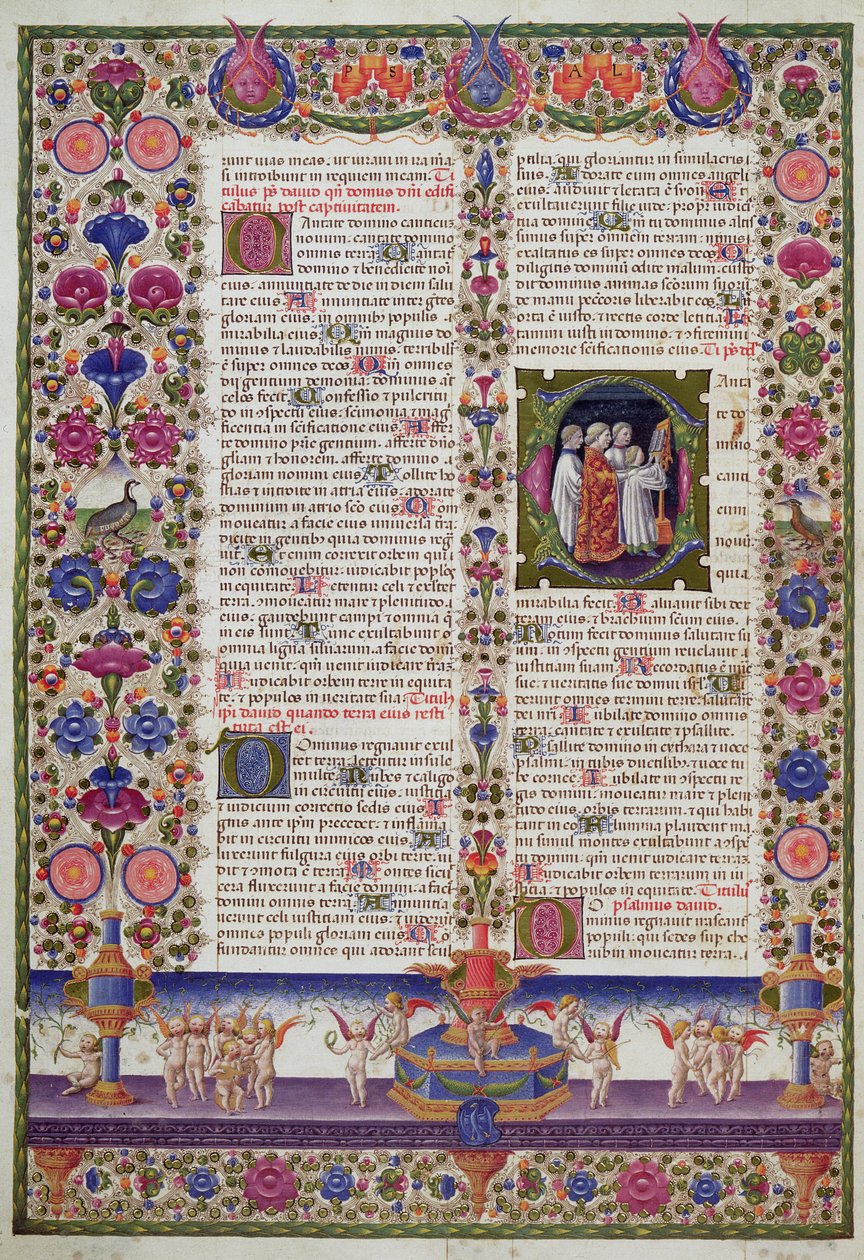 PS AL
runt vias meas. ut iuravi in ira mea
si introibunt in requiem meam. Ti
tulus ps david qn domus dni edifi
cabatur post captivitatem.
Cantate domino canticum
novum. cantate domino
omnis terra. Cantate
domino et benedicite noi
eius. annutiate de die in diem salu
tare eius. Annutiate inter gentes
gloriam eius. in omnibus populis
mirabilia eius. Qm magnus do
minus et laudabilis nimis. terribilis
est super omnes deos. Qm omnes
dii gentium demonia. dominus aut
celos fecit. Confessio et pulcritu
do in conspectu eius. scimonia et mag
ficentia in scificatione eius. Afferte
domino prie gentium. afferte dno
gliam et honorem. afferte domino
gloriam nomini eius. Tollite ho
stias et introite in atria eius. adorate
dominum in atrio sco eius. Co
moveatur a facie eius universa terra
dicite in gentibus quia dominus reg
vit. Et enim correxit orbem qui
non comovebitur. iudicabit poplos
in equitate. Letentur celi et exultet
terra. comoveatur mare et plenitudo
eius. gaudebunt campi et omnia q
in eis sunt. Tunc exultabunt
omnia ligna silvarum a facie domi
quia venit. qm venit iudicare terra.
Iudicabit orbem terre in equita
te. et populos in veritate sua. Titulus
ipi david quando terra eius resti
tuta est ei.
Dominus regnavit exul
tet terra. letentur insule
multe. Nubes et caligo
in circuitu eius. iusticia
et iudicium correctio sedis eius. I
gnis ante ipm precedet. et inflama
bit in circuitu inimicos eius. Il
luxerunt fulgura eius orbi terre. vi
dit et comota est terra. Montes sicut
cera fluxerunt a facie domini. a facie
domini omnis terra. Annuntia
verunt celi iustitiam eius. et viderunt
omnes populi gloriam eius. Co
fundantur omnes qui adorant scul
ptilia. qui gloriantur in simulacris
suis. Adorate eum omnes angeli
eius. audivit et letata est syon. Et
exultaverunt filie iude. propter iudicia
tua domine. Qm tu dominus altis
simus super omnem terram. nimis
exaltatus es super omnes deos. Qui
diligitis dominum odite malum. custo
dit dominus animas scorum suorum
de manu peccatoris liberabit eos. Lux
orta est iusto. et rectis corde letitia. Le
tamini iusti in domino. et confitemini
memorie scificationis eius. Ti ps dd
Canta
te do
mino
canti
cum
novum.
quia
mirabilia fecit. Salvavit sibi dex
tera eius. et brachium scum eius.
Notum fecit dominus salutare su
um. in conspectu gentium revelavit
iustitiam suam. Recordatus est mie
sue. et veritatis sue domui israel. Vi
derunt omnes termini terre. salutare
dei nri. Iubilate domino omnis
terra. cantate et exultate et psallite.
Psallite domino in cythara et voce
psalmi. in tubis ductilibus et voce tu
be cornee. Iubilate in conspectu re
gis domini. moveatur mare et pleni
tudo eius. orbis terrarum et qui habi
tant in eo. Flumina plaudent ma
nu. simul montes exultabunt a conspe
ctu domini. qm venit iudicare terraz.
Iudicabit orbem terrarum in iu
sticia. et populos in equitate. Titulus
psalmus david.
Dominus regnavit irascantur
populi. qui sedes super che
rubin moveatur terra.